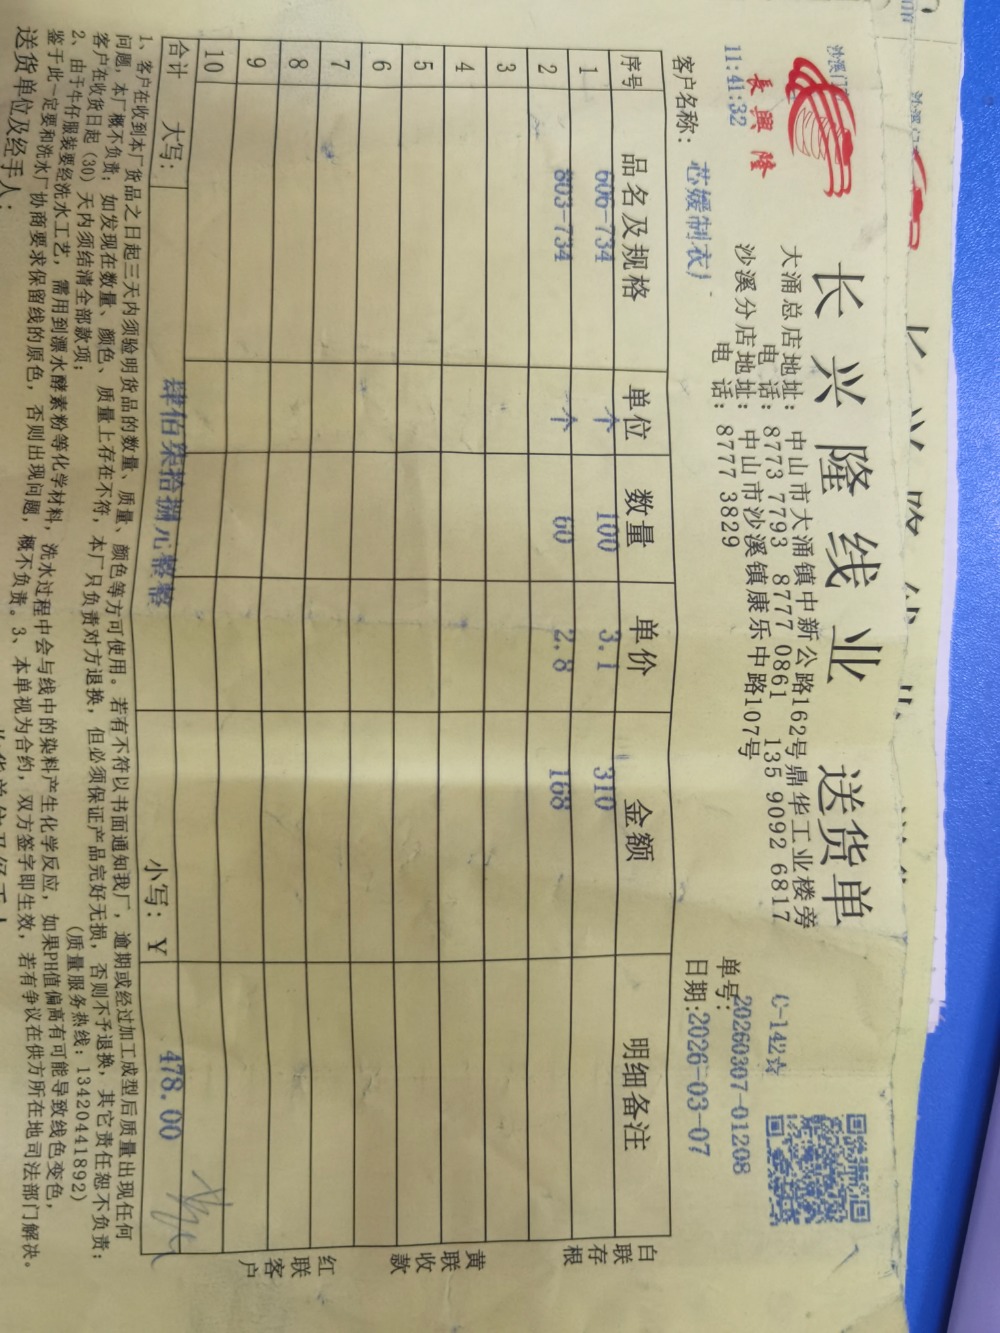 长兴隆线业 送货单
長興隆
沙溪门
11:41:32
大涌总店地址：中山市大涌镇中新公路162号鼎华工业楼旁
电话：8773 7793 8777 0861 135 9092 6817
沙溪分店地址：中山市沙溪镇康乐中路107号
电话：8777 3829
C-142☆
单号：20260307-01208
客户名称：芯媛制衣厂
日期：2026-03-07
序号 品名及规格 单位 数量 单价 金额 明细备注
1 606-734 个 100 3.1 310
2 803-734 个 60 2.8 168
3
4
5
6
7
8
9
10
合计 大写：肆佰柒拾捌元整整 小写：￥ 478.00
白联存根
黄联收款
红联客户
1、客户在收到本厂货品之日起三天内须验明货品的数量、质量、颜色等方可使用。若有不符以书面通知我厂，逾期或经过加工成型后质量出现任何
问题，本厂概不负责；如发现在数量、颜色、质量上存在不符，本厂只负责对方退换，但必须保证产品完好无损，否则不予退换，其它责任恕不负责；
客户在收货日起（30）天内须结清全部款项；
（质量服务热线：13420441892）
2、由于牛仔服装要经洗水工艺，需用到漂水酵素粉等化学材料，洗水过程中会与线中的染料产生化学反应，如果PH值偏高有可能导致线色变色，
鉴于此一定要和洗水厂协商要求保留线的原色，否则出现问题，概不负责。3、本单视为合约，双方签字即生效，若有争议在供方所在地司法部门解决。
送货单位及经手人：